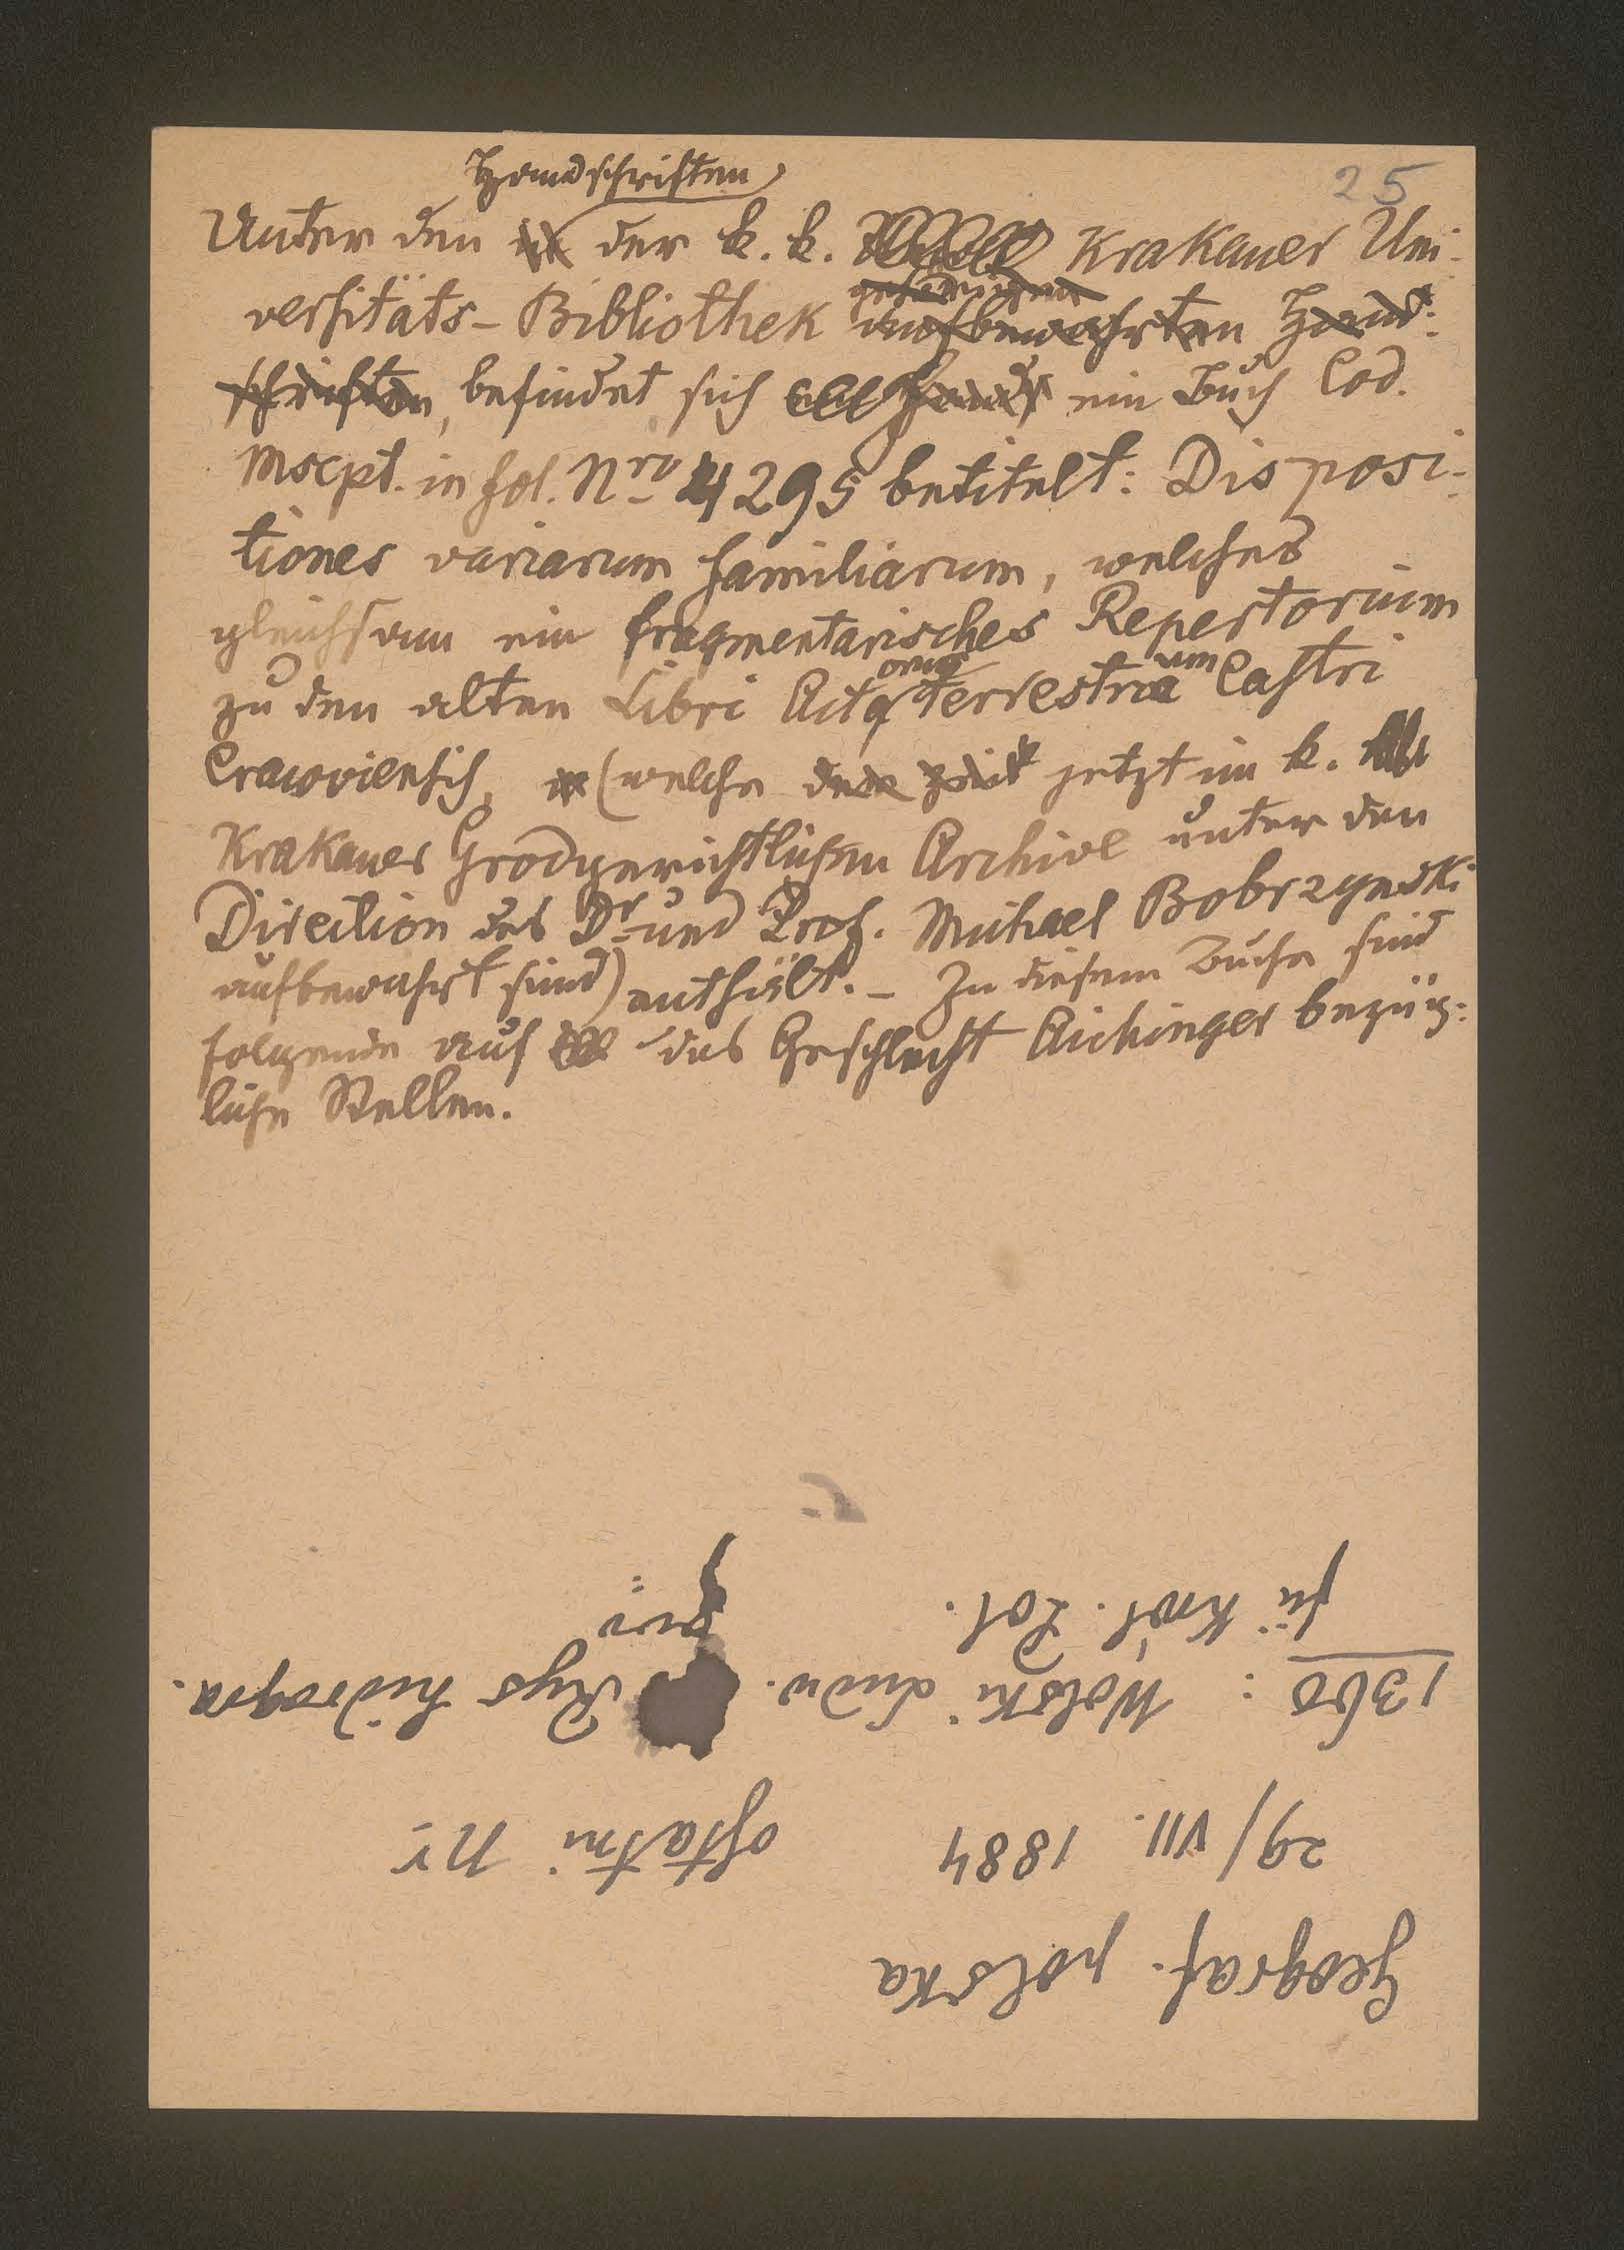 25
Handschriften
Unter den der k. k. Krakauer Uni-
versitäts-Bibliothek aufbewahrten Hand-
schriften, befindet sich ein Buch Cod.
Mscpt. in fol. Nro 4295 betitelt: Disposi-
tiones variarum familiarum, welches
gleichsam ein fragmentarisches Repertorium
zu den alten Libri Actorum Terrestrium Castri
Cracoviensis, (welche jetzt im k.
Krakauer Grodgerichtlichen Archive unter den
Direction des Dr und Prof. Michael Bobrzynski
aufbewahrt sind) enthält. – In diesem Buche sind
folgende auf das Geschlecht Aichinger bezüg-
liche Stellen.
Geograf. polska
29/VII. 1884 ostatni Nr
1360: Wolski Ludw. Rys hidrogra.
Król. Pol.